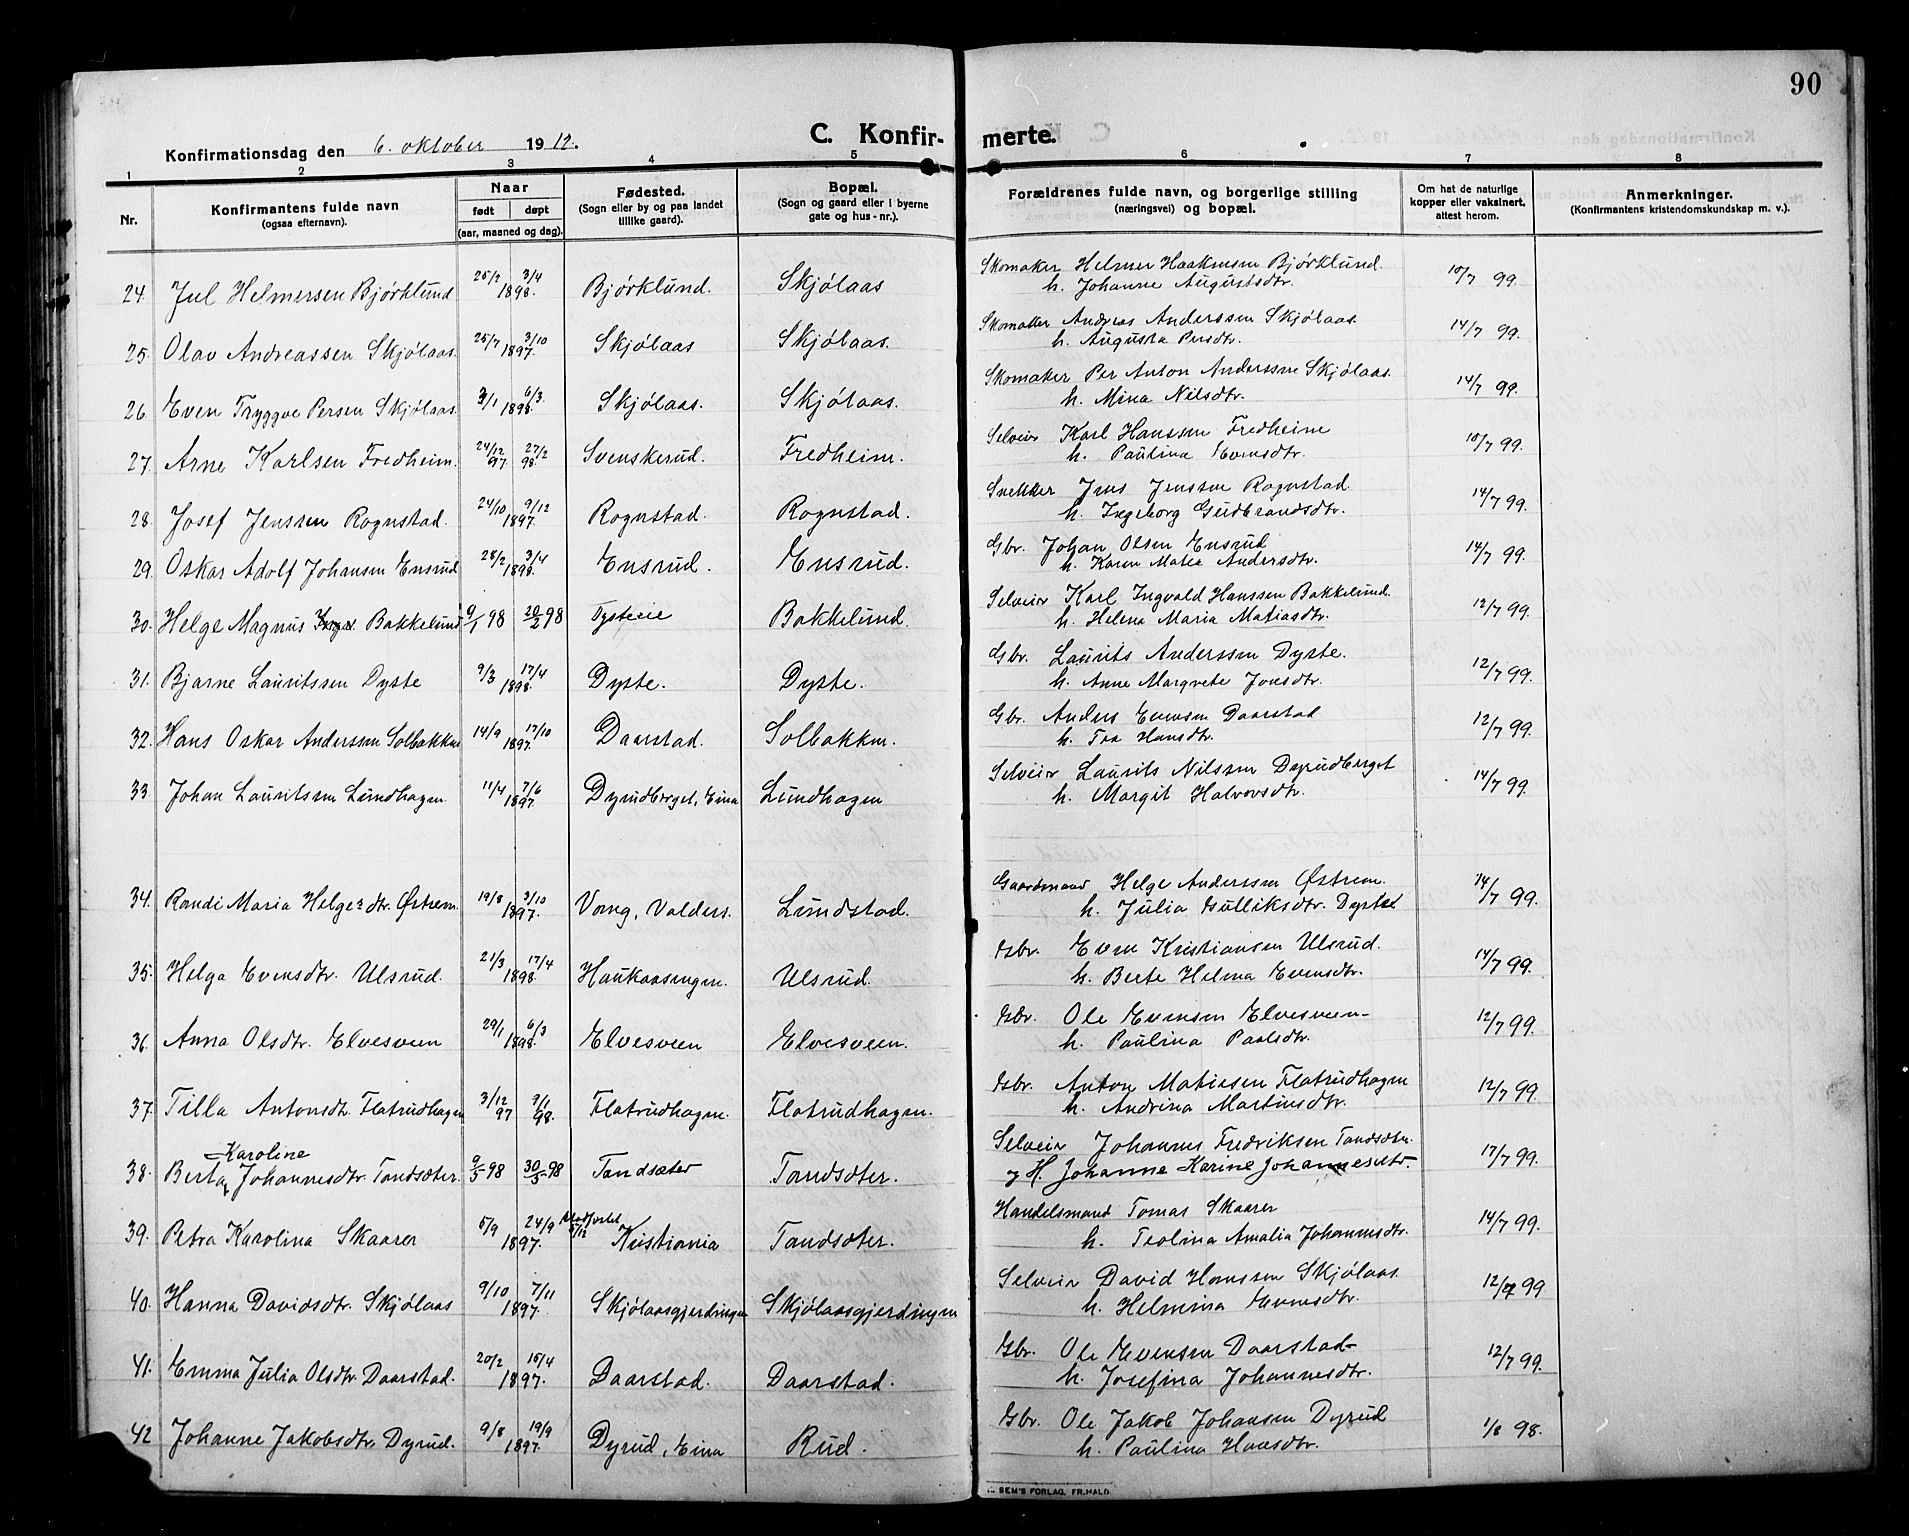 90
Konfirmationsdag den 6. oktober 1912.
C. Konfirmerte.
1 2 3 4 5 6 7 8
Nr. Konfirmantens fulde navn (ogsaa efternavn). Naar født døpt (aar, maaned og dag). Fødested. (Sogn eller by og paa landet tillike gaard). Bopæl. (Sogn og gaard eller i byerne gate og hus-nr.). Forældrenes fulde navn, og borgerlige stilling (næringsvei) og bopæl. Om hat de naturlige kopper eller vaksinert, attest herom. Anmerkninger. (Konfirmantens kristendomskundskap m. v.).
24. Jul Helmersen Bjørklund 25/2 3/4 1898. Bjørklund. Skjølaas Skomaker Helmer Haakensen Bjørklund. 10/7 99.
h. Johanne Augustsdtr.
25. Olav Andreassen Skjølaas. 25/7 3/10 1897. Skjølaas Skjølaas. Skomaker Andreas Anderssen Skjølaas. 14/7 99.
h. Augusta Persdtr.
26. Even Tryggve Persen Skjølaas. 3/1 6/3 1898. Skjølaas. Skjølaas. Skomaker Per Anton Anderssen Skjølaas. 14/7 99.
h. Mina Nilsdtr.
27. Arne Karlsen Fredheim. 24/12 97. 27/2 98. Svenskerud. Fredheim. Selveier Karl Hanssen Fredheim 10/7 99.
h. Paulina Evensdtr.
28. Josef Jenssen Rognstad. 24/10 9/12 1897. Rognstad. Rognstad. Snekker Jens Jenssen Rognstad. 14/7 99.
h. Ingeborg Gudbrandsdtr.
29. Oskar Adolf Johansen Ensrud 28/2 3/4 1898. Ensrud. Ensrud. Gbr. Johan Olsen Ensrud 14/7 99.
h. Karen Matea Andersdtr.
30. Helge Magnus Bakkelund 9/1 98 20/2 98 Dysteeie Bakkelund. Selveier Karl Ingvald Hanssen Bakkelund. 12/7 99.
h. Helena Maria Matiasdtr.
31. Bjarne Lauritssen Dyste 9/3 17/4 1898. Dyste. Dyste. Gbr. Laurits Anderssen Dyste. 12/7 99.
h. Anne Margrete Jonsdtr.
32. Hans Oskar Anderssen Solbakken 14/9 17/10 1897. Daarstad. Solbakken. Gbr. Anders Evensen Daarstad 12/7 99.
h. Tea Hansdtr.
33. Johan Lauritssen Lundhagen. 11/4 7/6 1897. Dyrudberget, Eina Lundhagen Selveier Laurits Nilssen Dyrudberget 14/7 99.
h. Margit Halvorsdtr.
34. Randi Maria Helgesdtr. Østrem. 19/8 3/10 1897. Vang, Valders. Lundstad. Gaardmand Helge Anderssen Østrem. 14/7 99.
h. Julia Gulliksdtr. Dyste
35. Helga Evensdtr. Ulsrud. 21/3 17/4 1898. Haukaasengen. Ulsrud. Gbr. Even Kristiansen Ulsrud. 14/7 99.
h. Berte Helma Evensdtr.
36. Anna Olsdtr. Elvesveen 29/1 6/3 1898. Elvesveen Elvesveen. Gbr. Ole Evensen Elvesveen- 12/7 99.
h. Paulina Paalsdtr.
37. Tilla Antonsdtr. Flatrudhagen 3/12 97 9/1 98. Flatrudhagen. Flatrudhagen. Gbr. Anton Matiasen Flatrudhagen 12/7 99.
h. Andrina Martinsdtr.
38. Berta Karoline Johannesdtr. Tandsæter. 9/5 98 30/5 98 Tandsæter Tandsæter. Selveier Johannes Fredriksen Tandsæter. 17/7 99.
og H. Johanne Karine Johannesdtr.
39. Petra Karolina Skaarer 5/9 24/9 1897. Kristiania Tandsæter. Handelsmand Tomas Skaarer 14/7 99.
h. Teolina Amalia Johannesdtr.
40. Hanna Davidsdtr. Skjølaas 9/10 7/11 1897. Skjølaasgjerdingen Skjølaasgjerdingen Selveier David Hanssen Skjølaas. 12/7 99
h. Helmina Evensdtr.
41. Emma Julia Olsdtr. Daarstad. 20/2 15/4 1897. Daarstad. Daarstad. Gbr. Ole Evensen Daarstad- 12/7 99.
h. Josefina Johannesdtr.
42 Johanne Jakobsdtr. Dyrud. 9/8 19/9 1897. Dyrud, Eina Rud. Gbr. Ole Jakob Johansen Dyrud 1/8 98.
h. Paulina Hansdtr.
SEM'S FORLAG, FR.HALD